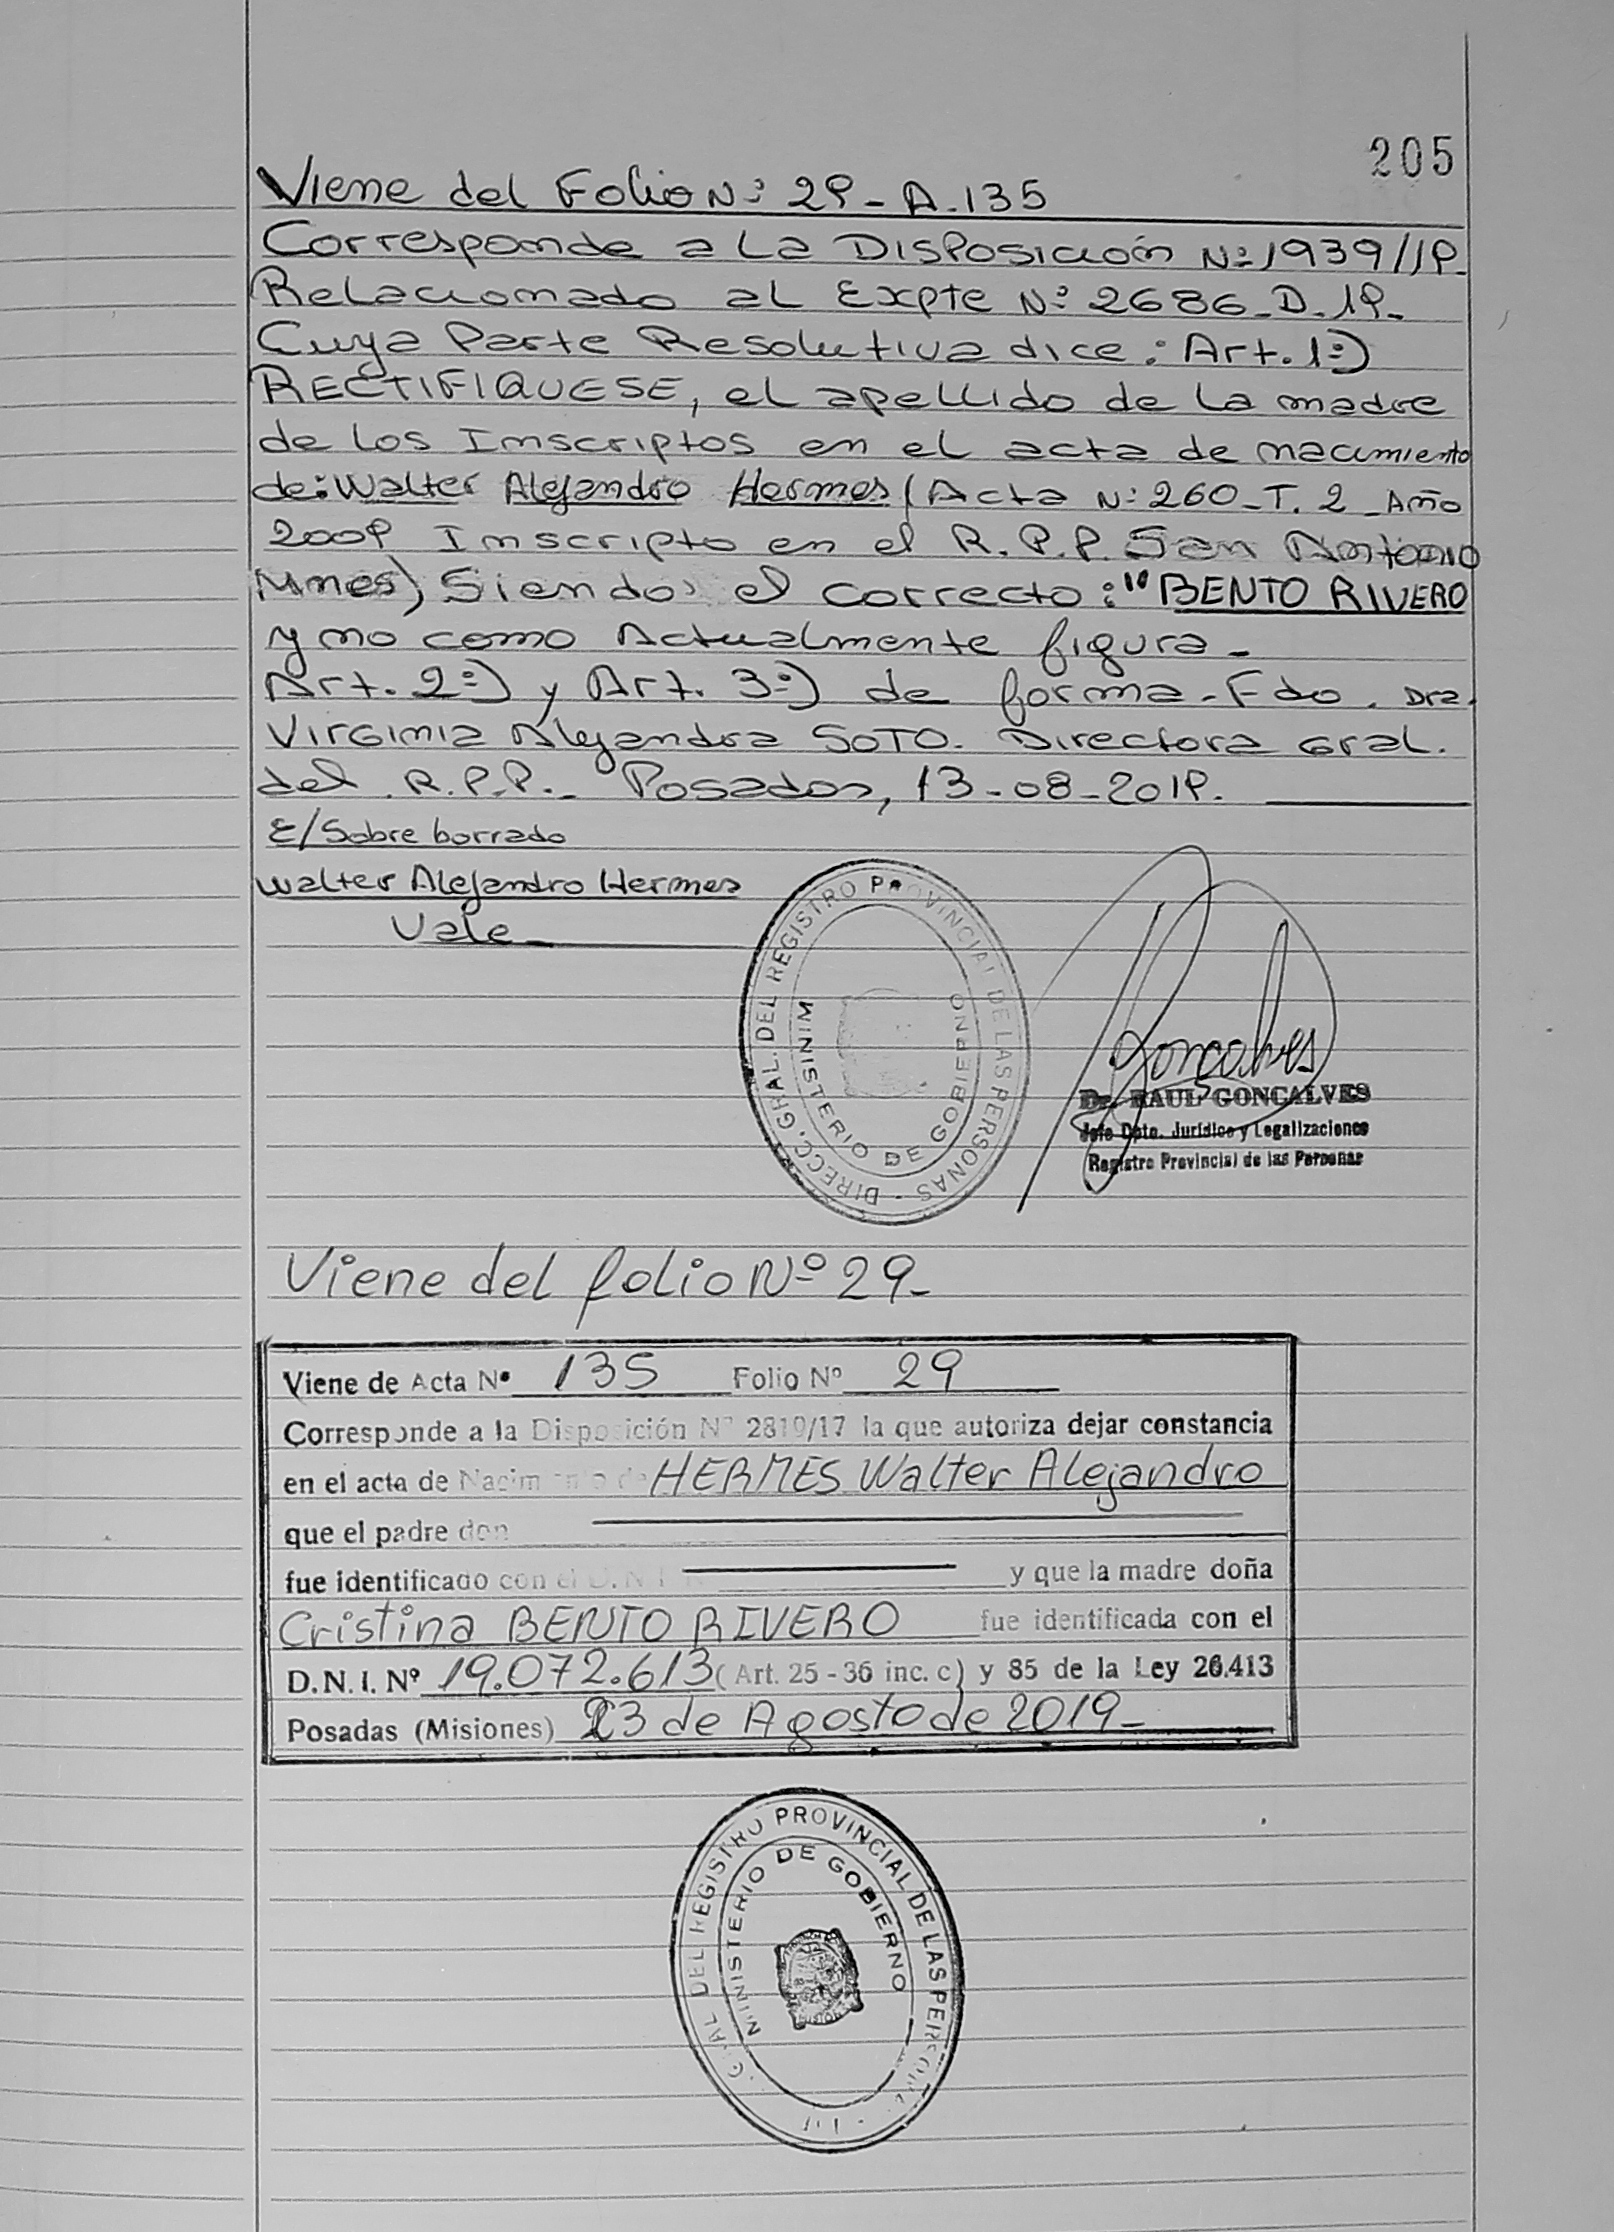 205
Viene del Folio Nº 29 - A. 135
Corresponde a La Disposición Nº 1939/19.
Relacionado al Expte Nº 2686_D_19_
Cuya Parte Resolutiva dice: Art. 1º)
RECTIFIQUESE, el apellido de la madre
de los Inscriptos en el acta de nacimiento
de: Walter Alejandro Hermes (Acta Nº 260_T. 2_Año
2009 Inscripto en el R.P.P. San Antonio
Mnes) Siendo el correcto: "BENTO RIVERO
y no como Actualmente figura_
Art. 2º) y Art. 3º) de forma. Fdo. Dra.
Virginia Alejandra SOTO. Directora Gral.
del R.P.P._ Posadas, 13-08-2019.
E/Sobre borrado
Walter Alejandro Hermes
Vale_
DIRECC. GRAL. DEL REGISTRO PROVINCIAL DE LAS PERSONAS -
MINISTERIO DE GOBIERNO
Goncalves
Dr. RAUL GONCALVES
Jefe Dpto. Jurídico y Legalizaciones
Registro Provincial de las Personas
Viene del folio Nº 29_
Viene de Acta Nº 135 Folio Nº 29
Corresponde a la Disposición Nº 2819/17 la que autoriza dejar constancia
en el acta de Nacimiento de HERMES Walter Alejandro
que el padre don
fue identificado con el D.N.I. Nº y que la madre doña
Cristina BENTO RIVERO fue identificada con el
D.N.I. Nº 19.072.613 (Art. 25 - 36 inc. c) y 85 de la Ley 26.413
Posadas (Misiones) 23 de Agosto de 2019_
GRAL DEL REGISTRO PROVINCIAL DE LAS PERSONAS
MINISTERIO DE GOBIERNO